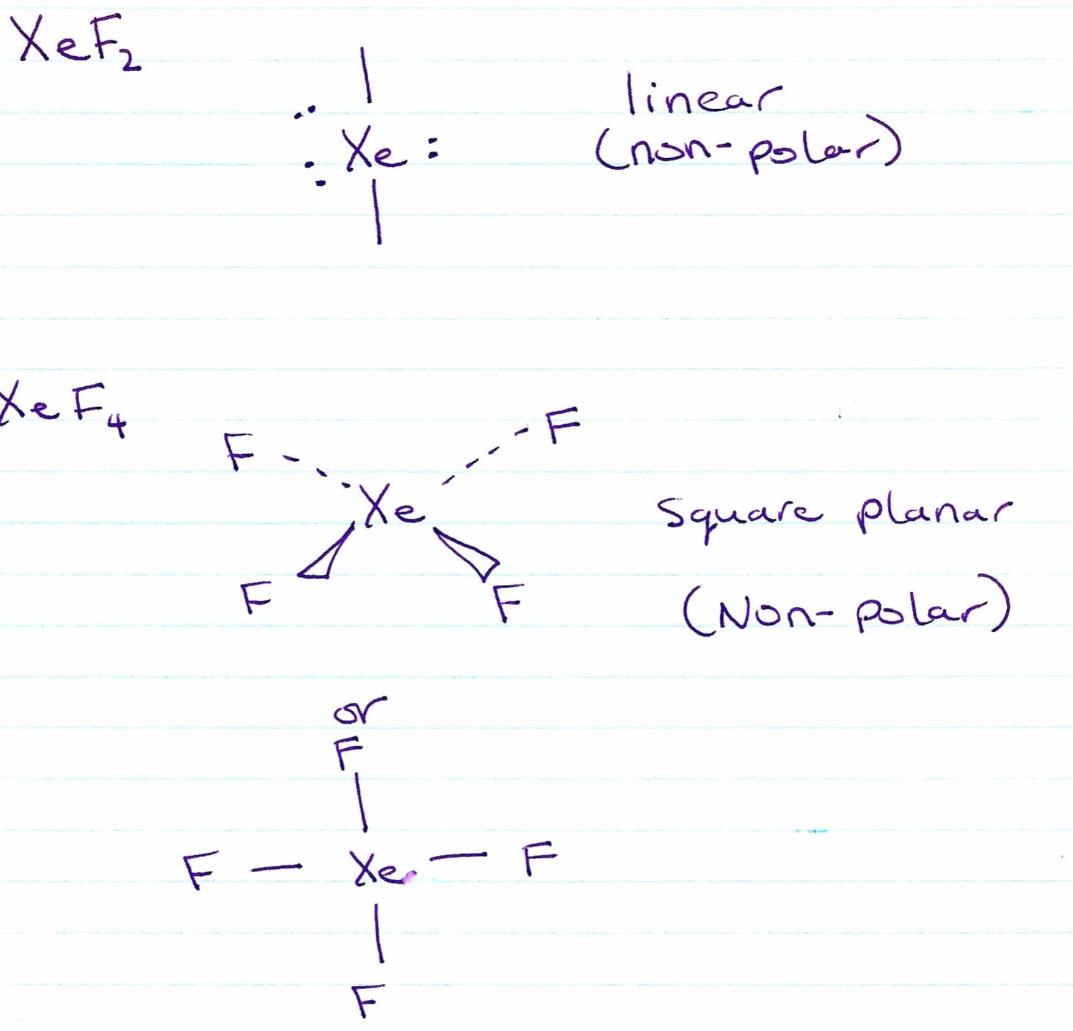 XeF₂
linear
Xe
(non-polar)
XeF₄
F F
Xe
square planar
F F
(Non-polar)
or
F
F — Xe — F
F